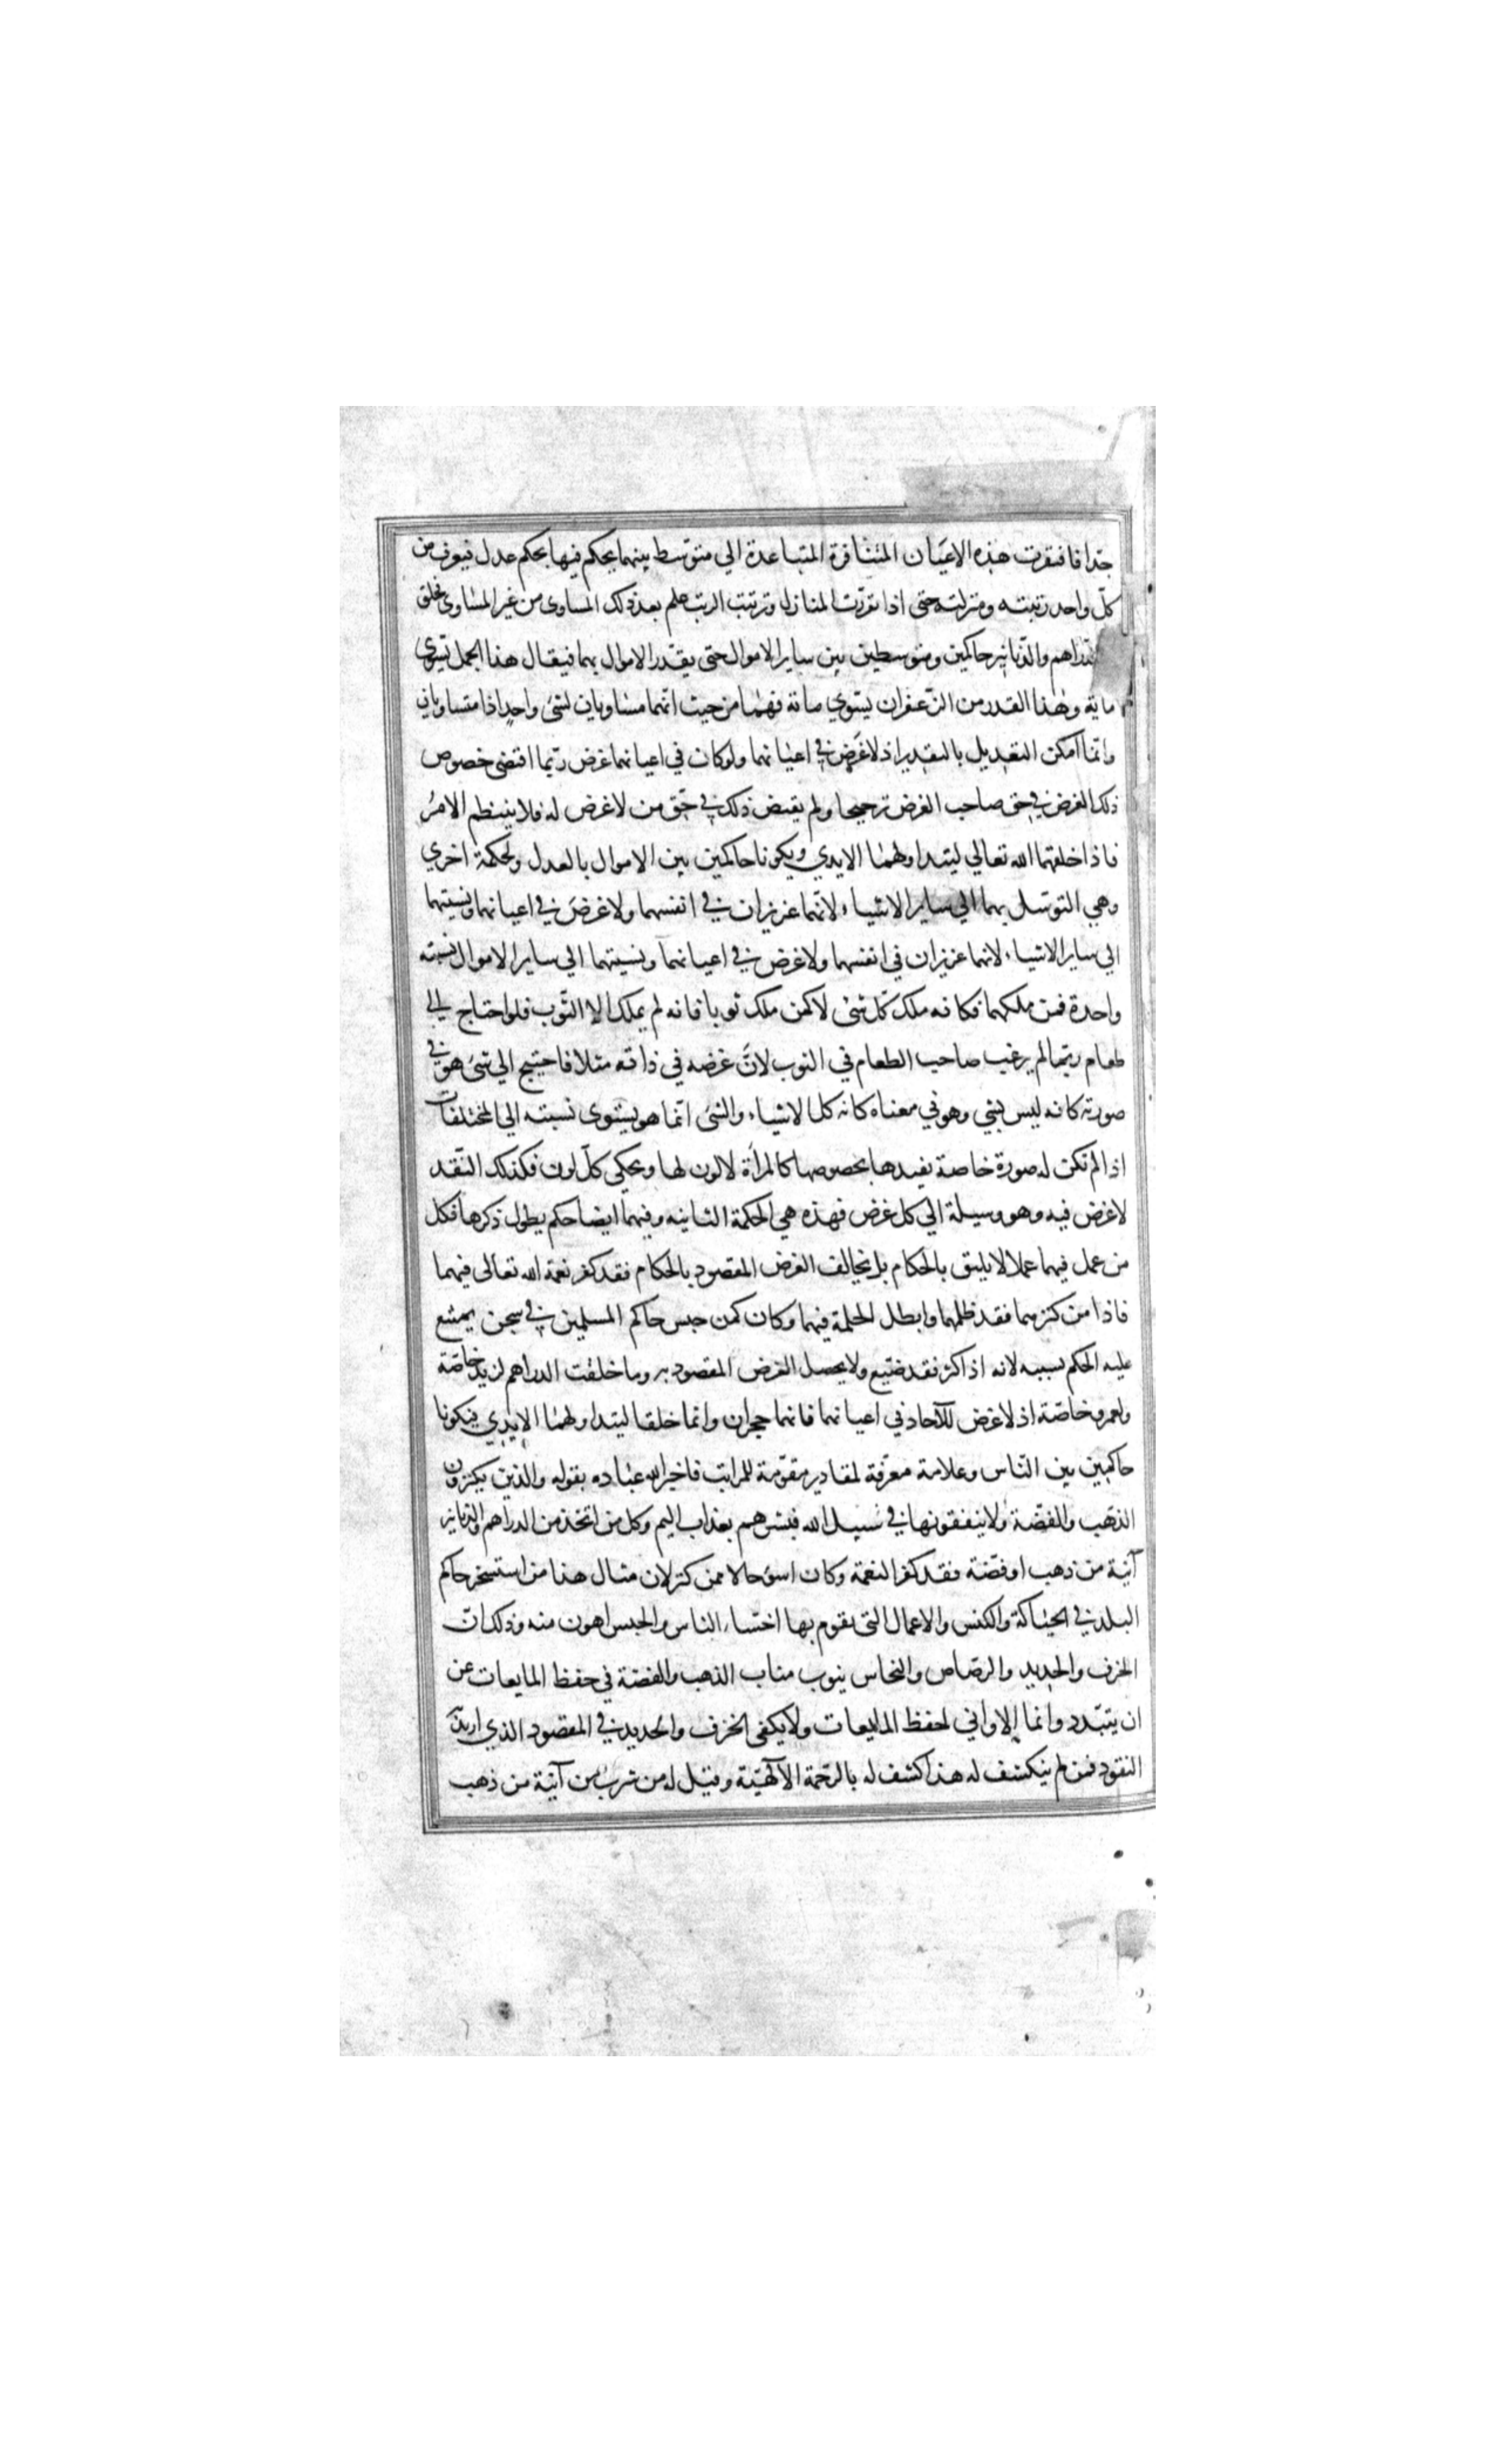 جدا فافتقرت هذه الاعيان المتنافرة المتباعدة الي متوسط بينهما يحكم فيها بحكم عدل فيعرف من
كلّ واحد رتبته ومنزلته حتى اذا تقررت المنازل وترتبت الرتب علم بعد ذلك المساوى من غير المساوى فخلق
الدراهم والدّنانير حاكمين ومتوسطين بين ساير الاموال حتى يقدّر الاموال بهما فيقال هذا الجمل يسوي
ماية وهذا القدر من الزعفران يسوي ماية فهما من حيث انّهما مساويان لشئ واحد اذا متساويان
وانّما امكن التعديل بالنقدين اذ لا غرض في اعيانهما ولو كان في اعيانهما غرض ربّما اقتضى خصوص
ذلك الغرض في حق صاحب الغرض ترجيحا ولم يقتض ذلك في حقّ من لا غرض له فلا ينتظم الامرُ
فاذا خلقهما الله تعالي ليتداولهما الايدي ويكونا حاكمين بين الاموال بالعدل ولحكمة اخري
وهي التوسّل بهما الي ساير الاشياء لانّهما عزيزان في انفسهما ولا غرضَ في اعيانهما ونسبتهما
الي ساير الاشياء لانهما عزيزان في انفسهما ولا غرض في اعيانهما ونسبتهما الي ساير الاموال نسبته
واحدة فمن ملكهما فكانه ملك كلّ شئ لا كمن ملك ثوبا فانه لم يملك الا الثّوب فلو احتاج الي
طعام ربّما لم يرغب صاحب الطعام في الثوب لانّ غرضه في ذاته مثلا فاحتيج الي شئ هو في
صورته كانه ليس بشي وهو في معناه كانه كل الاشياء والشئ انّما هو يستوى نسبته الي المختلفات
اذا لم تكن له صورة خاصة يفيدها بخصوصها كالمرأة لا لون لها ويحكي كلّ لون فكذلك النّقد
لا غرض فيه وهو وسيلة الي كل غرض فهذه هي الحكمة الثانيه وفيهما ايضا حكم يطول ذكرها فكل
من عمل فيهما عملا لا يليق بالحكام بل يخالف الغرض المقصود بالحكام فقد كفر نعمة الله تعالى فيهما
فاذا من كنزهما فقد ظلمهما وابطل الحكمة فيهما وكان كمن حبس حاكم المسلمين في سجن يمتنع
عليه الحكم بسببه لانه اذا كنز فقد ضيّع ولا يحصل الغرض المقصود به وما خلقت الدراهم لزيد خاصّة
ولعمرو خاصّة اذ لا غرض للآحاد في اعيانهما فانهما حجران وانما خلقا ليتداولهما الايدي فيكونا
حاكمين بين النّاس وعلامة معرّفة لمقادير مقوّمة للمراتب فاخبر الله عباده بقوله والذين يكنزون
الذهب والفضّة ولا ينفقونها في سبيل الله فبشرهم بعذاب اليم وكل من اتخذ من الدراهم والدنانير
آنية من ذهب او فضّة فقد كفر النعمة وكان اسوء حالا ممن كنز لان مثال هذا من استسخر حاكم
البلد في الحياكة والكنس والاعمال التي يقوم بها اخسّاء الناس والحبس اهون منه وذلك انّ
الخزف والحديد والرصاص والنحاس ينوب مناب الذهب والفضة في حفظ المايعات عن
ان يتبّدد وانما الاواني لحفظ المايعات ولا يكفي الخزف والحديد في المقصود الذي اريد
النقود فمن لم ينكشف له هذا كشف له بالرحمة الآلهيّة وقيل له من شرب من آنية من ذهب